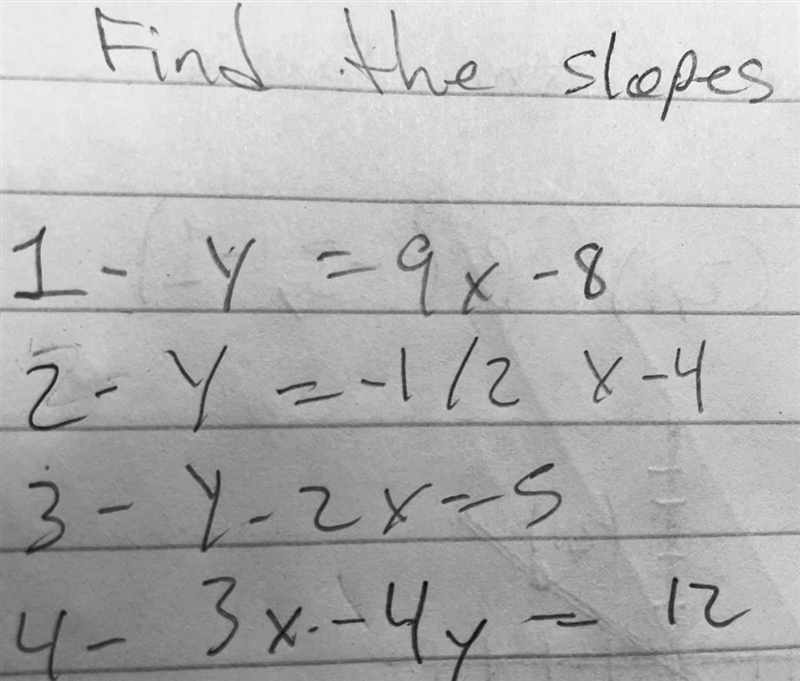 Find the slopes
1 - y = 9x - 8
2 - y = -1/2 x - 4
3 - y - 2x = 5
4 - 3x - 4y = 12